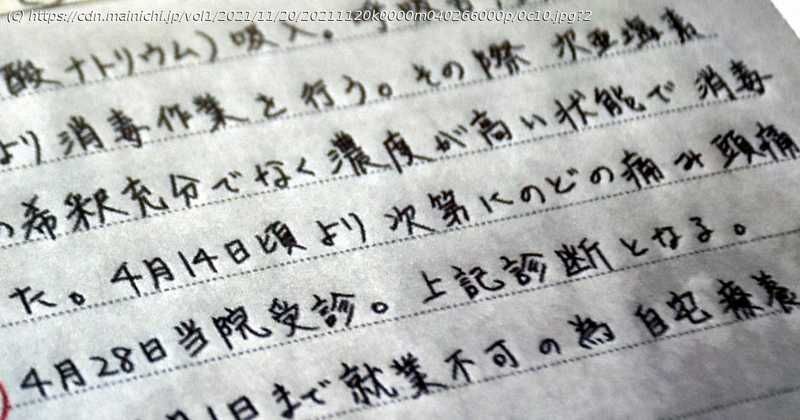 © https://cdn.mainichi.jp/vol1/2021/11/20/20211120k0000m040266000p/0c10.jpg?2
酸ナトリウム)吸入。
より消毒作業を行う。その際 次亜塩素
の希釈充分でなく濃度が高い状態で消毒
た。4月14日頃より次第にのどの痛み頭痛
4月28日当院受診。上記診断となる。
月1日まで就業不可の為 自宅療養